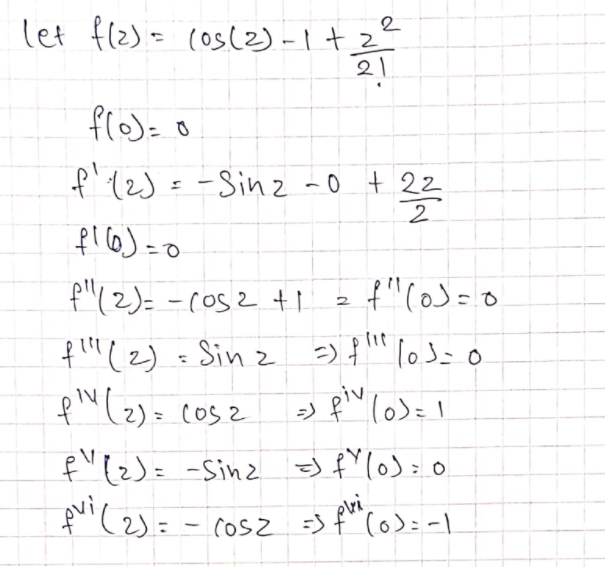 let f(z) = cos(z) - 1 + z²/2!
f(0) = 0
f'(z) = -Sin z - 0 + 2z/2
f'(0) = 0
f''(z) = -cos z + 1 = f''(0) = 0
f'''(z) = Sin z => f'''(0) = 0
f^iv(z) = cos z => f^iv(0) = 1
f^v(z) = -Sin z => f^v(0) = 0
f^vi(z) = - cos z => f^vi(0) = -1